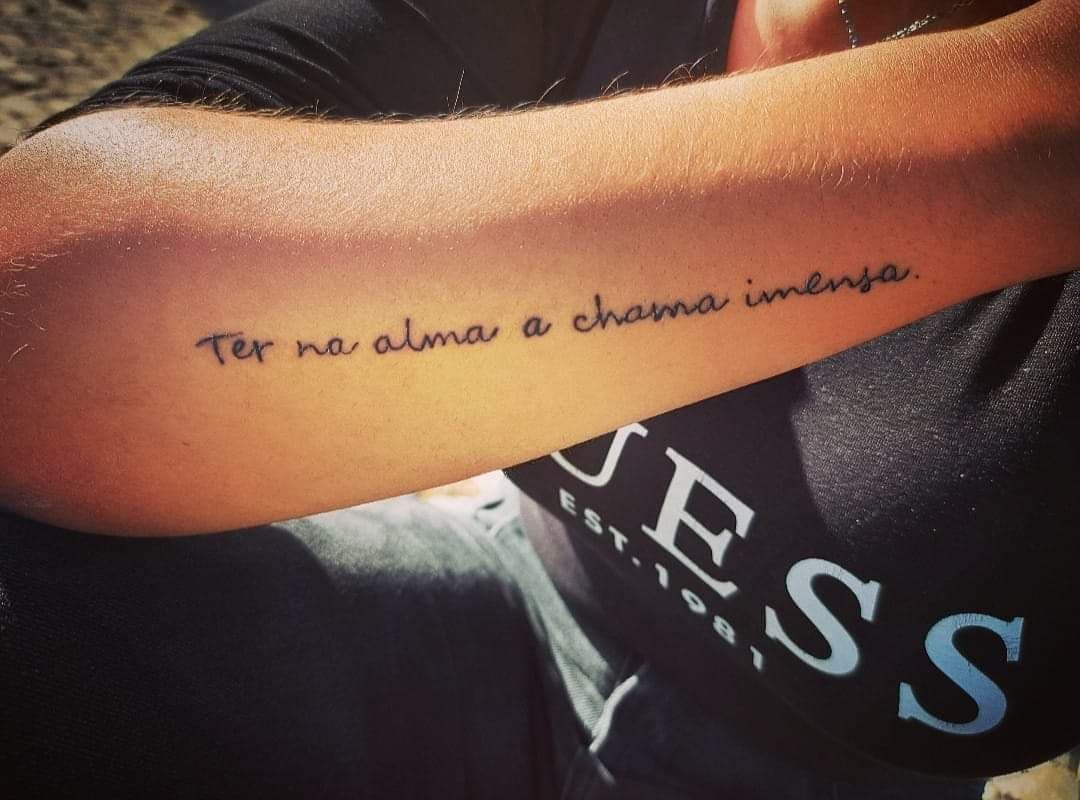 Ter na alma a chama imensa.
UESS
EST. 1981